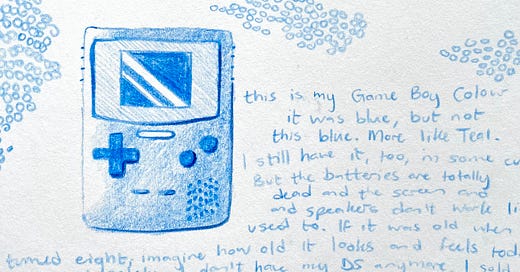 this is my Game Boy Colour
it was blue, but not
this blue. More like Teal.
I still have it, too, in some
But the batteries are totally
dead and the screen and
and speakers don't work
used to. If it was old when
turned eight, imagine how old it looks and feels
don't have my DS anymore I sold